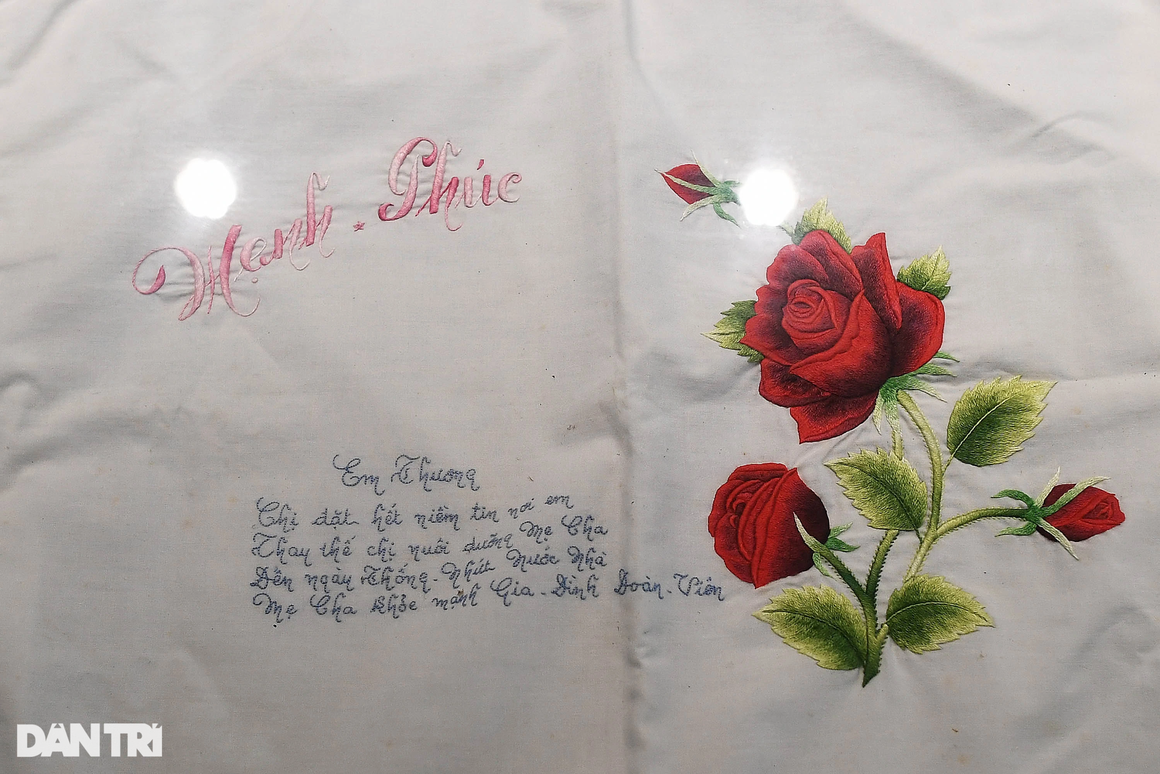 Mạnh * Phúc
Em Thương
Chị đặt hết niềm tin nơi em
Thay thế chị nuôi dưỡng Mẹ Cha
Đến ngày Thống - Nhứt Nước Nhà
Mẹ Cha khỏe mạnh Gia - Đình Đoàn - Viên
DÂN TRÍ